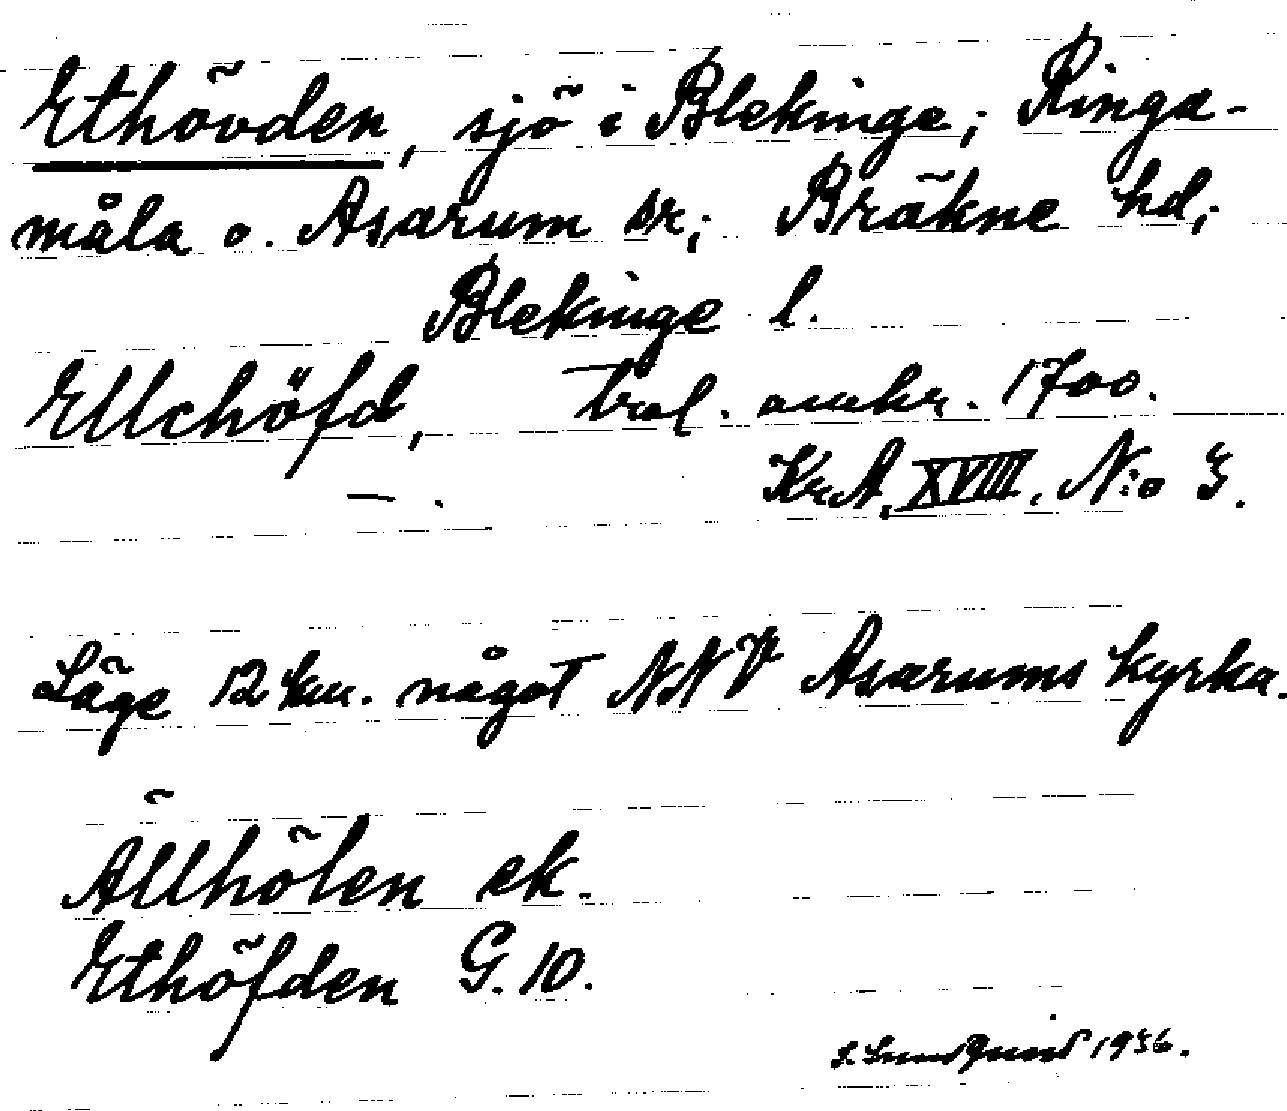 Ethövden, sjö i Blekinge; Ringa-
måla o. Asarum sr; Bräkne hd;
Blekinge l.
Ellchöfd, trol. omkr. 1700.
— . KrA, XVIII, N:o 3.
Läge 12 km. något NNV Asarums kyrka.
Ällhölen ek.
Ethöfden G. 10.
S. Lundquist 1936.